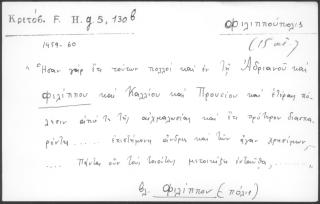 Κριτόβ. F. H. g 5, 130β
Φιλιππούπολις
(15 αἰ)
1459-60
"Ἦσαν γὰρ ἔτι τούτων πολλοὶ καὶ ἐν τῇ Ἀδριανοῦ καὶ
Φιλίππου καὶ Καλλίου καὶ Προυσίου καὶ ἑτέραις πό
λεσιν ἀπό τε τῆς αἰχμαλωσίας καὶ ἔτι πρότερον διασπα
ρέντες ....... ἐπιστήμονες ἄνδρες καὶ τῶν ἄγαν χρησίμων,
.... Πάντας οὖν τοὺς τοιούτους μετοικίζει ἐνταῦθα, ........"
βλ. Φιλίππου (-πόλις)